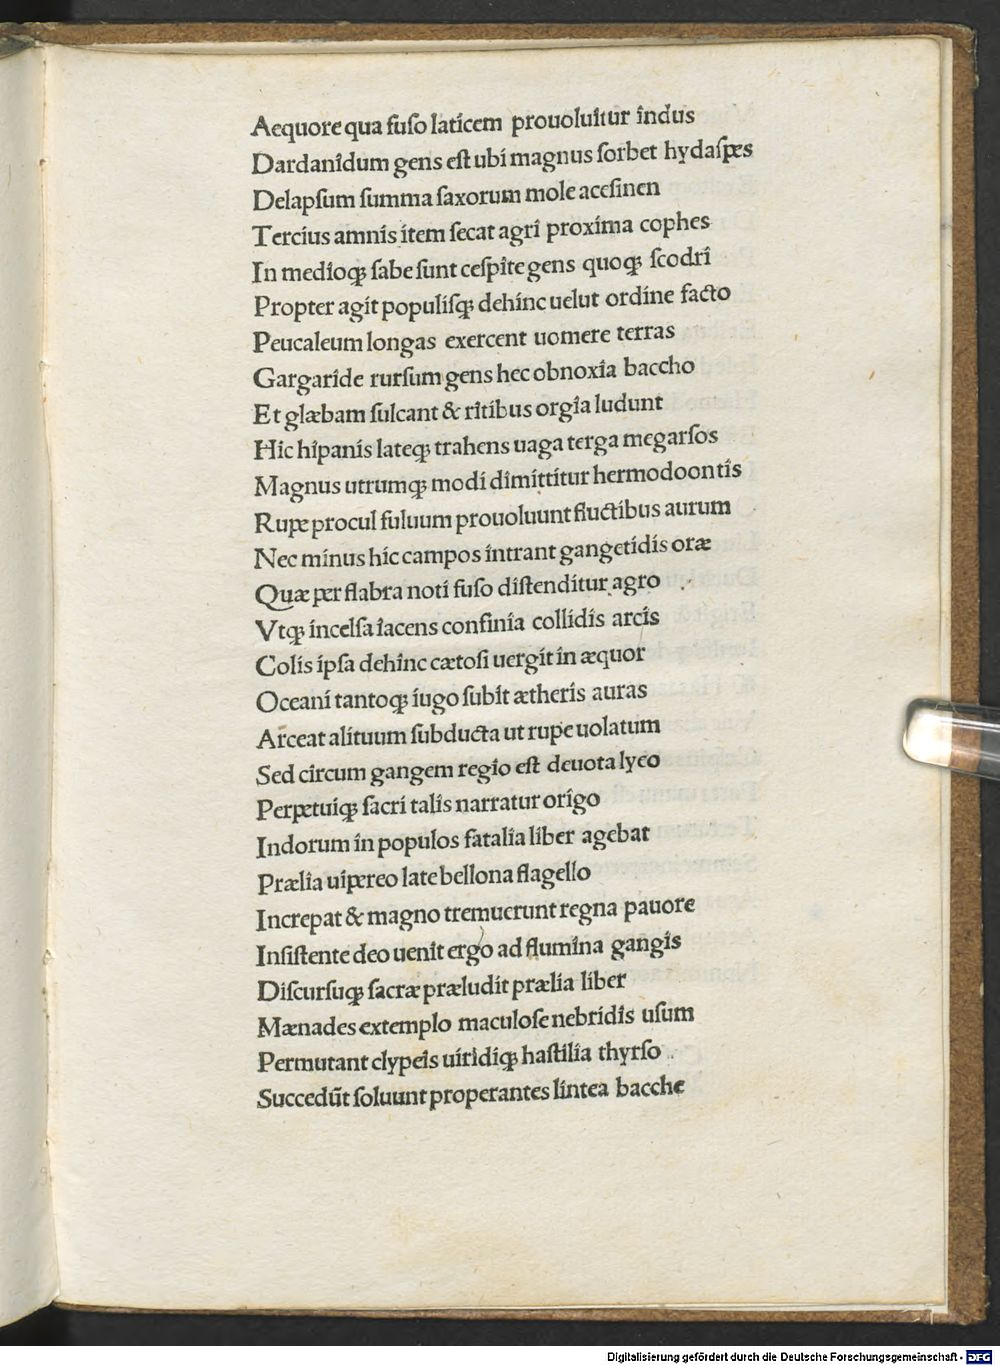 Aequore qua fuſo laticem prouoluitur indus
Dardanidum gens eſt ubi magnus ſorbet hydaſpes
Delapſum ſumma ſaxorum mole aceſinen
Tercius amnis item ſecat agri proxima cophes
In medioqꝫ ſabe ſunt ceſpite gens quoqꝫ ſcodri
Propter agit populiſqꝫ dehinc uelut ordine facto
Peucaleum longas exercent uomere terras
Gargaride rurſum gens hec obnoxia baccho
Et glæbam ſulcant & ritibus orgia ludunt
Hic hipanis lateqꝫ trahens uaga terga megarſos
Magnus utrumqꝫ modi dimittitur hermodoontis
Rupe procul fuluum prouoluunt fluctibus aurum
Nec minus hic campos intrant gangetidis oræ
Quæ per flabra noti fuſo diſtenditur agro
Vtqꝫ incelſa iacens confinia collidis arcis
Colis ipſa dehinc cætoſi uergit in æquor
Oceani tantoqꝫ iugo ſubit ætheris auras
Arceat alituum ſubducta ut rupe uolatum
Sed circum gangem regio eſt deuota lyeo
Perpetuiqꝫ ſacri talis narratur origo
Indorum in populos fatalia liber agebat
Prælia uipereo late bellona flagello
Increpat & magno tremuerunt regna pauore
Inſiſtente deo uenit ergo ad flumina gangis
Diſcurſuqꝫ ſacræ præludit prælia liber
Mænades extemplo maculoſe nebridis uſum
Permutant clypeis uiridiqꝫ haſtilia thyrſo
Succedūt ſoluunt properantes lintea bacche
Digitalisierung gefördert durch die Deutsche Forschungsgemeinschaft - DFG